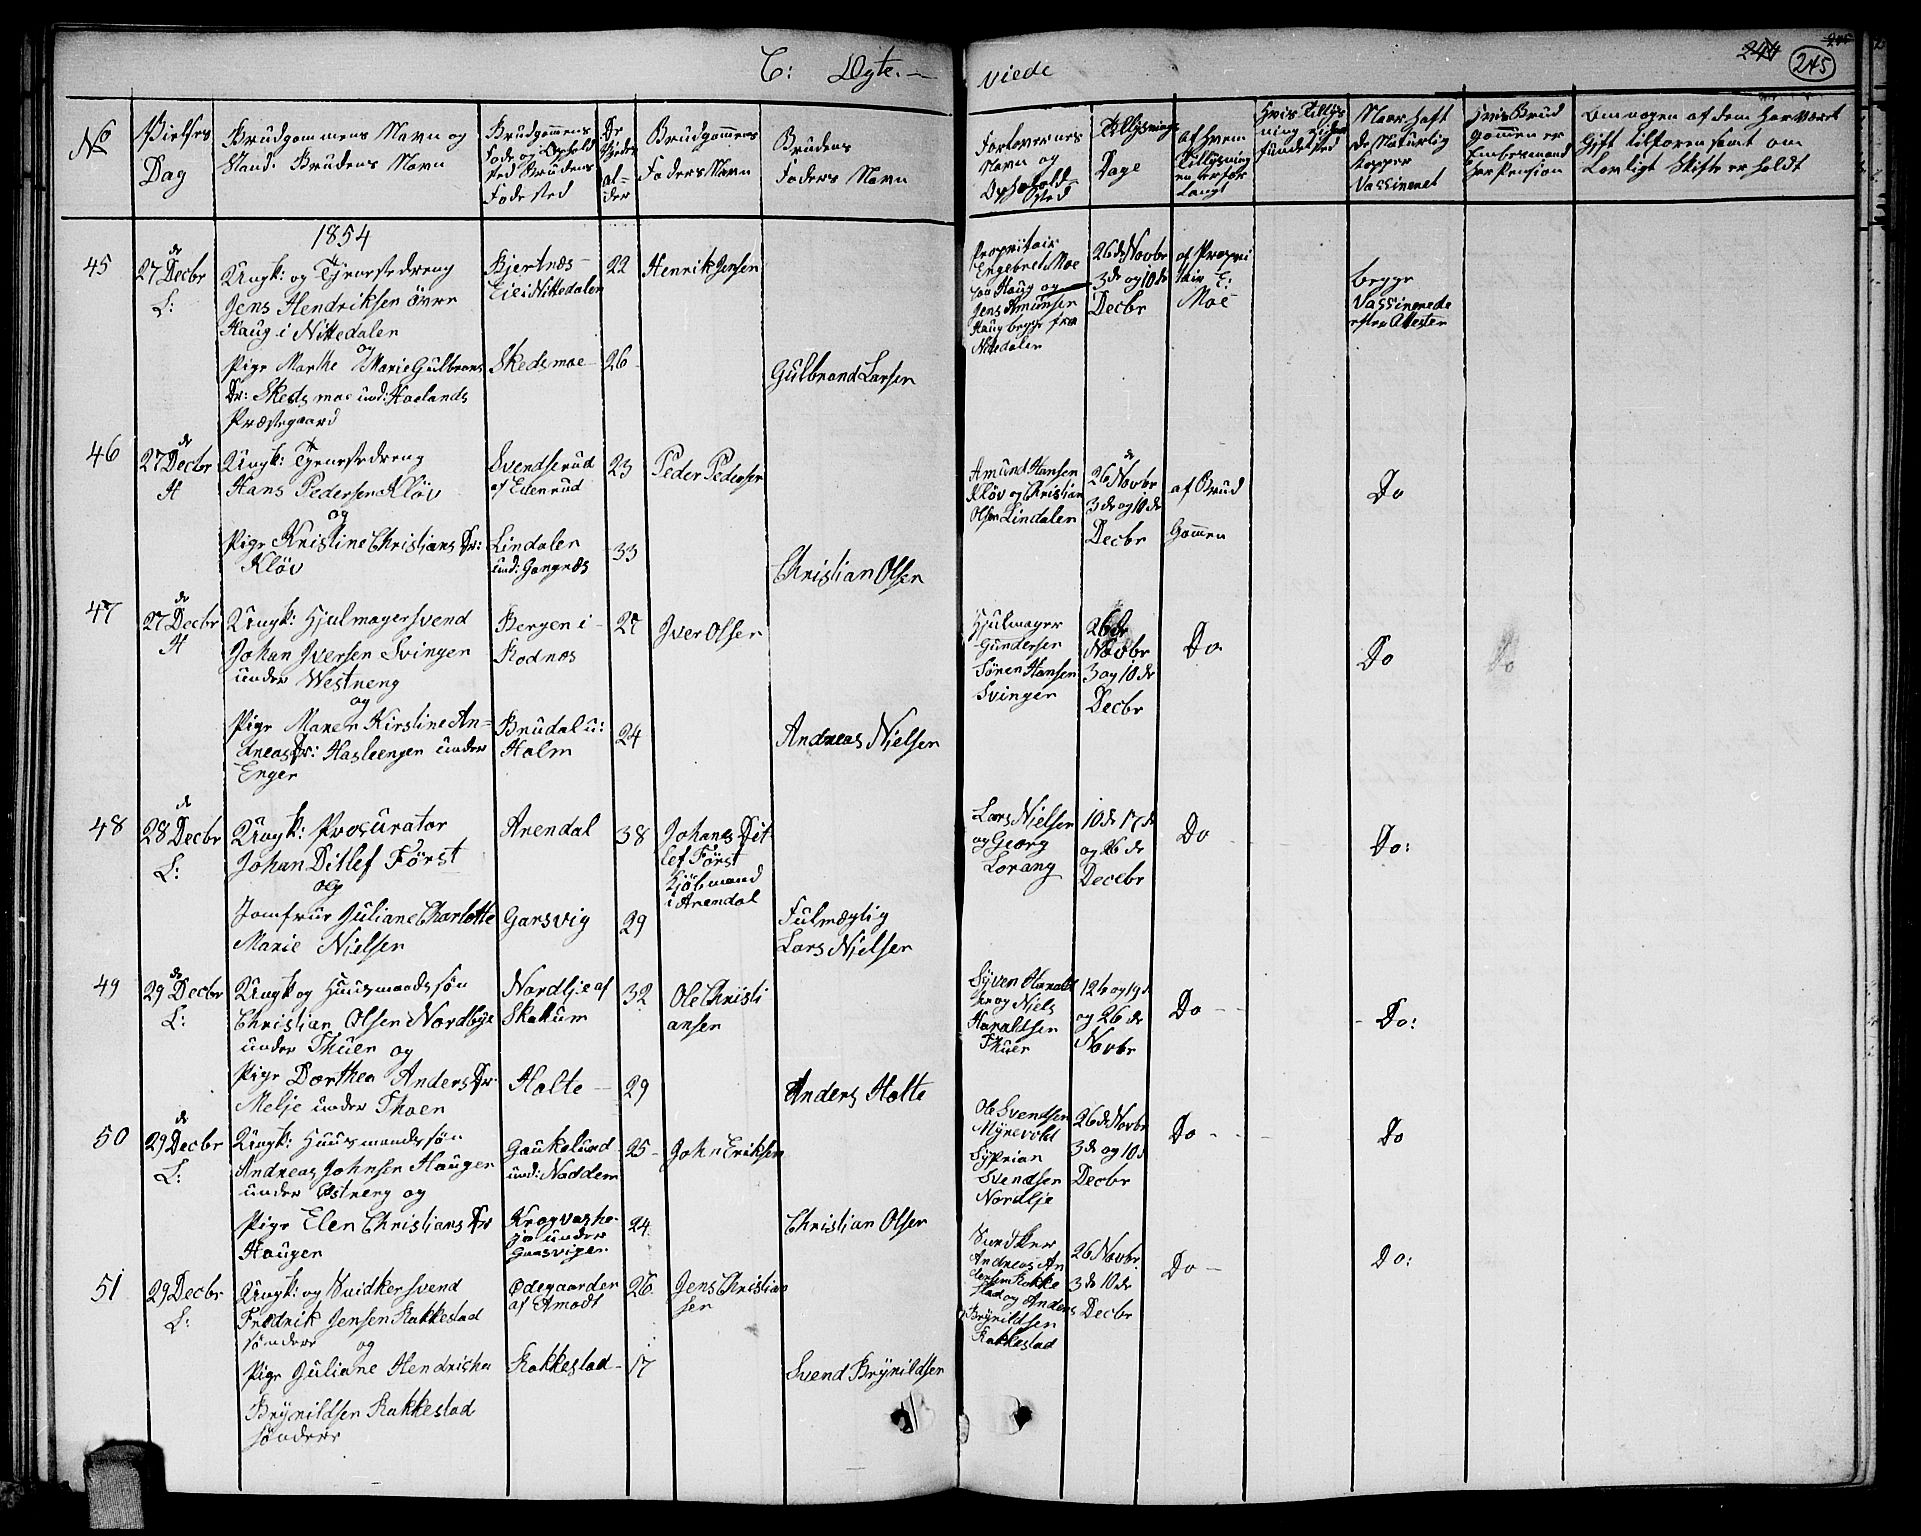 C: Ægte-
viede
244
245
No
Vielses Dag
Brudgommens Navn og Stand. Brudens Navn
Brudgommens Føde og Ophold sted Brudens Føde sted
Brudgommens Faders Navn
Brudens Faders Navn
Forlovernes Navn og Opholdssted
Tillysnings Dage
af hvem Tillysningen er forlangt
Naar haft de Naturlige Kopper Vassineret
Hvis Brudgommen er Embedsmand Har Pension
Om nogen af dem Har været
Gift tilforen samt om
Lovligt Skifte er holdt
1854
45
27 de Decbr
L:
Ungk: og Tjenestedreng
Jens Hendriksen øvre
Haug i Nittedalen
og
Pige Marthe Marie Gulbrans
Dr: Skedsmoe und: Hoelands
Præstegaard
Bjertnæs-
Eie i Nittedalen
Skedsmoe
22
26
Henrik Jensen
Gulbrand Larsen
Propritair
Engebret Moe
paa Haug og
Jens Amunsen
Haug begge fra
Nittedalen
26 de Novbr
3 de og 10 de
Decbr
af Propri
tair E:
Moe
begge
Vassinerede
efter Attester
46
27 de Decbr
H
Ungk: Tjenestedreng
Hans Pedersen Kløv
og
Pige Kristine Christians Dr:
Kløv
Svendserud
af Edenrud
Lindalen
und: Gangnæs
23
33
Peder Pedersen
Christian Olsen
Amund Hansen
Kløv og Christian
Olsen Lindalen
26 de Novbr
3 de og 10 de
Decbr
af Brud
Gommen
Do
47
27 de Decbr
H
Ungk: Hjulmagersvend
Johan Iversen Svingen
under Westneng
og
Pige Maren Kirstine An-
dreas Dr: Hasleengen under
Enger
Bergen i
Rodnæs
Brudal u:
Holm
27
24
Iver Olsen
Andreas Nielsen
Hjulmager
Gundersen
Søren Hansen
Svingen
26 de
Novbr
3 og 10 de
Decbr
Do
Do
Do
48
28 de Decbr
L:
Ungk: Procurator
Johan Ditlef Først
og
Jomfrue Juliane Charlotte
Marie Nielsen
Arendal
Garsvig
38
29
Johanes Dit
lef Først
Kjøbmand
i Arendal
Fulmægtig
Lars Nielsen
Lars Nielsen
og Georg
Lorang
10 de 17 de
og 26 de
Decebr
Do
Do:
49
29 de Decbr
L:
Ungk og Huusmands søn
Christian Olsen Nordbye
under Thuen og
Pige Dorthea Anders Dr
Melje under Thoen
Nordlje af
Skakum
Holte
32
29
Ole Christi
ansen
Anders Holte
Syven Harald
sen og Niels
Haraldsen
Thuen
12 te og 19 de
og 26 de
Novbr
Do
Do:
50
29 de Decbr
L:
Ungk: Huusmands søn
Andreas Johnsen Haugen
under Østneng og
Pige Elen Christians Dr
Haugen
Gaukelund
und: Noddem
25
24
John Eriksen
Christian Olsen
Ole Svendsen
Myrevold
Syprian
Svendsen
Nordlje
26 de Novbr
3 de og 10 de
Decbr
Do
Do
51
29 Decbr
L:
Ungk: og Snidkersvend
Fredrik Jensen Rakkestad
søndere og
Pige Juliane Hendrikha
Brynildsen Rakkestad
søndere
Ødegaarden
af Amodt
Rakkestad
26
17
Jens Christian
sen
Svend Brynildsen
Snidker
Andreas An
dersen Rakke
stad og Anders
Brynildsen
Rakkestad
26 Novbr
3 de 10 de
Decbr
Do
Do: